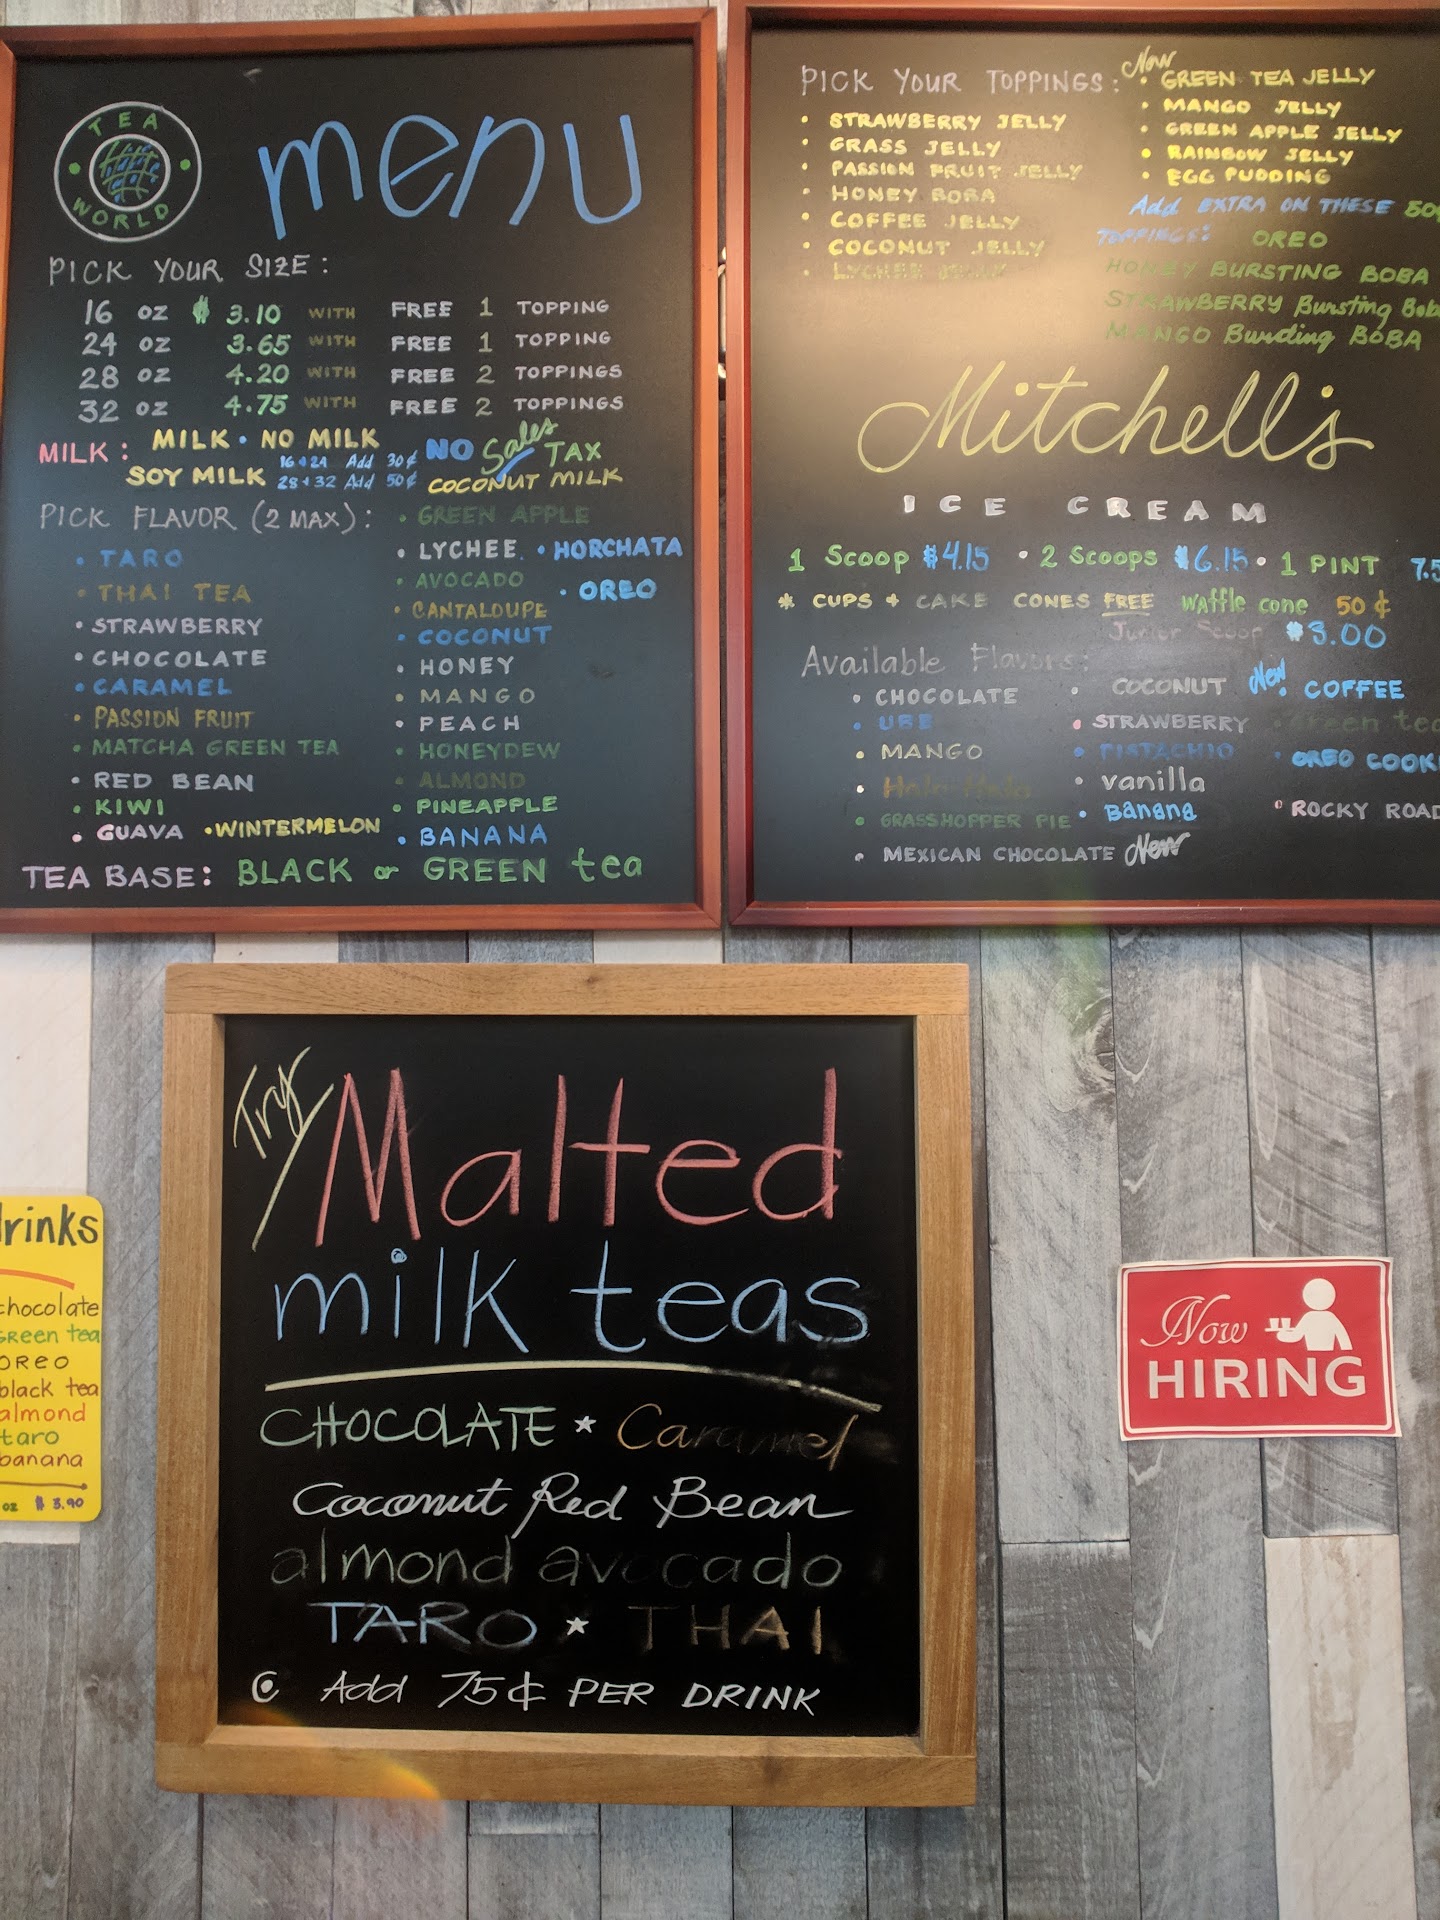 TEA WORLD
menu
PICK YOUR SIZE:
16 oz $ 3.10 WITH FREE 1 TOPPING
24 oz 3.65 WITH FREE 1 TOPPING
28 oz 4.20 WITH FREE 2 TOPPINGS
32 oz 4.75 WITH FREE 2 TOPPINGS
MILK: MILK • NO MILK NO Sales TAX
SOY MILK 16+24 Add 30¢ COCONUT MILK
28+32 Add 50¢
PICK FLAVOR (2 MAX):
• TARO
• THAI TEA
• STRAWBERRY
• CHOCOLATE
• CARAMEL
• PASSION FRUIT
• MATCHA GREEN TEA
• RED BEAN
• KIWI
• GUAVA • WINTERMELON
• GREEN APPLE
• LYCHEE • HORCHATA
• AVOCADO • OREO
• CANTALOUPE
• COCONUT
• HONEY
• MANGO
• PEACH
• HONEYDEW
• ALMOND
• PINEAPPLE
• BANANA
TEA BASE: BLACK or GREEN tea
PICK YOUR TOPPINGS:
• STRAWBERRY JELLY
• GRASS JELLY
• PASSION FRUIT JELLY
• HONEY BOBA
• COFFEE JELLY
• COCONUT JELLY
• LYCHEE JELLY
• GREEN TEA JELLY
• MANGO JELLY
• GREEN APPLE JELLY
• RAINBOW JELLY
• EGG PUDDING
Add EXTRA ON THESE 50¢
TOPPINGS: OREO
HONEY BURSTING BOBA
STRAWBERRY Bursting Boba
MANGO Bursting BOBA
Mitchell's
ICE CREAM
1 Scoop $4.15 • 2 Scoops $6.15 • 1 PINT 7.5
* CUPS + CAKE CONES FREE Waffle cone 50¢
Junior Scoop $3.00
Available Flavors:
• CHOCOLATE
• UBE
• MANGO
• Halo Halo
• GRASSHOPPER PIE
• MEXICAN CHOCOLATE New
• COCONUT
• STRAWBERRY
• PISTACHIO
• vanilla
• Banana
New • COFFEE
• Green tea
• OREO COOKI
• ROCKY ROAD
Try Malted
milk teas
CHOCOLATE * Caramel
Coconut Red Bean
almond avocado
TARO * THAI
Add 75¢ PER DRINK
drinks
chocolate
Green tea
OREO
black tea
almond
taro
banana
oz $ 3.90
Now
HIRING